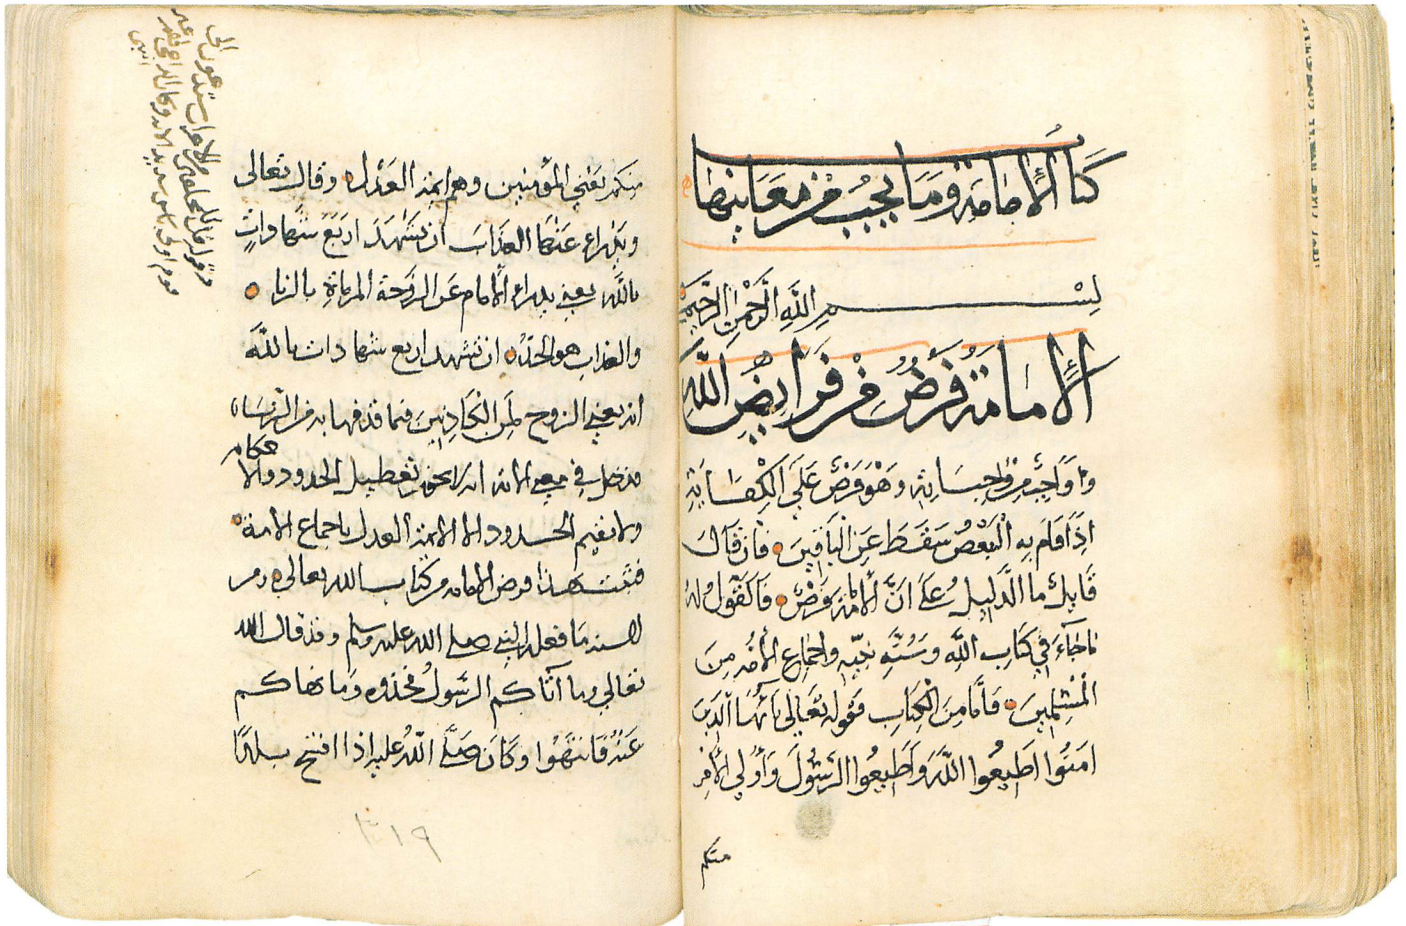 كتاب الإمامة وما يجب من معانيها
بسم الله الرحمن الرحيم
الإمامة فرض من فرايض الله
وواجب من واجباته وهو فرض على الكفاية
إذا قام به البعض سقط عن الباقين فإن قال
قايل ما الدليل على أن الإمامة فرض فالقول له
ما جاء في كتاب الله وسنة نبيه وإجماع الأمة من
المسلمين فأما من الكتاب فقوله تعالى يا أيها الذين
آمنوا أطيعوا الله وأطيعوا الرسول وأولي الأمر
منكم
منكم يعني المؤمنين وهم أيمة العدل وقال تعالى
ويدراء عنها العذاب أن تشهد أربع شهادات
بالله يعني يدراء الإمام عن الزوجة المرماة بالزنا
والعذاب هو الحد أن تشهد أربع شهادات بالله
إنه يعني الزوج لمن الكاذبين فيما قذفها به من الزنا
فدخل في معنى الآية تعطيل الحدود والأحكام
ولا يقيم الحدود إلا الأئمة العدل بإجماع الأمة
فثبت بهذا فرض الإمامة من كتاب الله تعالى ومن
السنة ما فعله النبي صلى الله عليه وسلم وقد قال الله
تعالى وما آتاكم الرسول فخذوه وما نهاكم
عنه فانتهوا وكان صلى الله عليه إذا افتتح بلدا
٣١٩